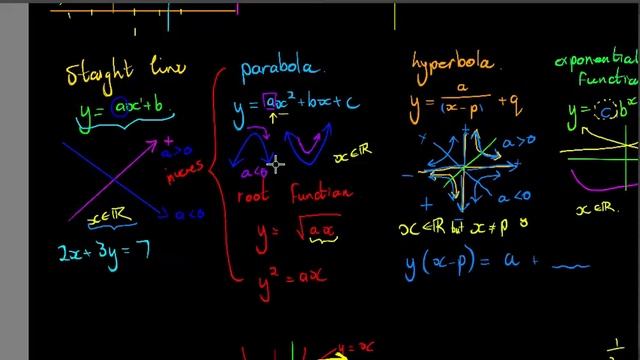 straight line
y = ax¹ + b
+
a>0
a<0
x∈ℝ
2x + 3y = 7
inverses
parabola
y = ax² + bx + c
a<0
x∈ℝ
root function
y = √ax
y² = ax
hyperbola
y = a/(x-p) + q
+ + a>0
- - a<0
x∈ℝ but x ≠ p
y(x-p) = a +
exponential
function
y = c b^x
x∈ℝ.
y=x
1